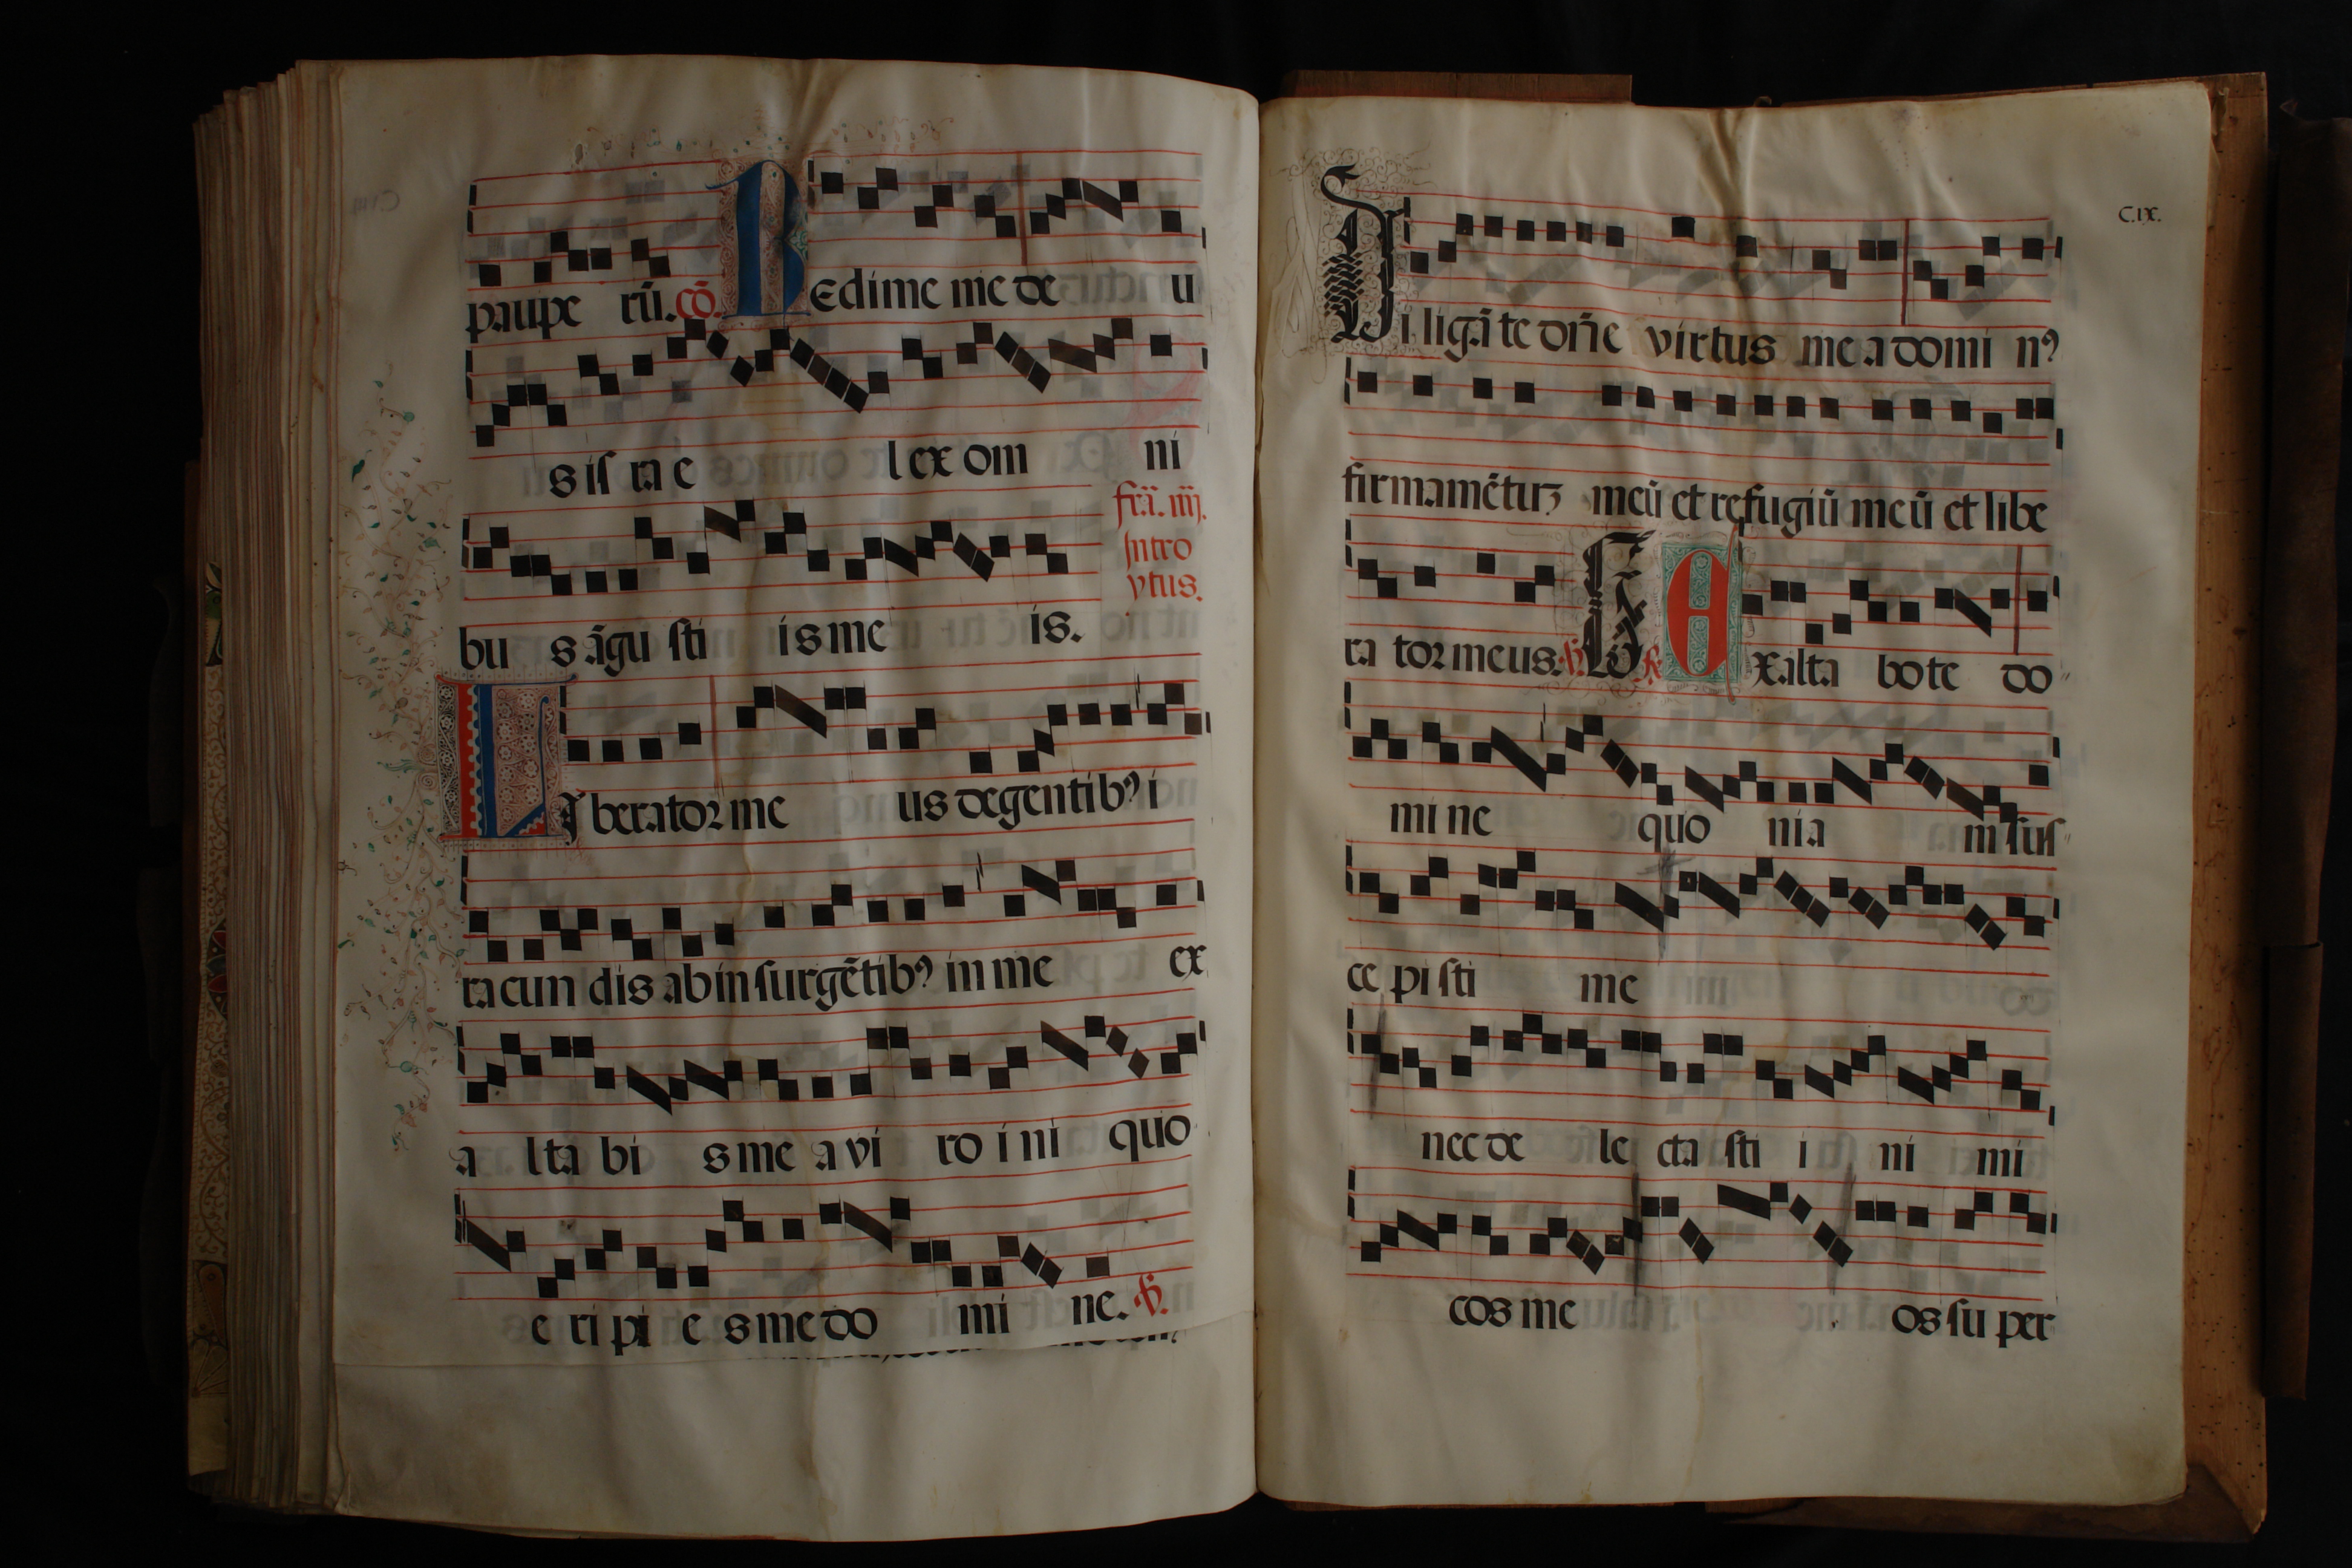 paupe rū. cō. Redime me de u
s iſ ra e l ex om ni
frā. iiij.
Intro
ytus.
bu s āgu ſti is me is.
Liberator me us de gentibꝰ i
racun dis ab inſurgētibꝰ in me ex
a lta bi s me a vi ro i ni quo
e ri pi e s me do mi ne.
C.ıx.
Diligā te dn̄e virtus me a domi nꝰ
firmamētuꝫ meū et refugiū meū et libe
ra tor meus. Exalta bo te do
mi ne quo nia m ſuſ
ce pi ſti me
nec de le cta ſti i ni mi
cos me os ſu per